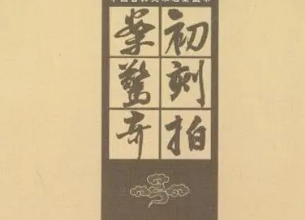 初刻拍
案驚奇